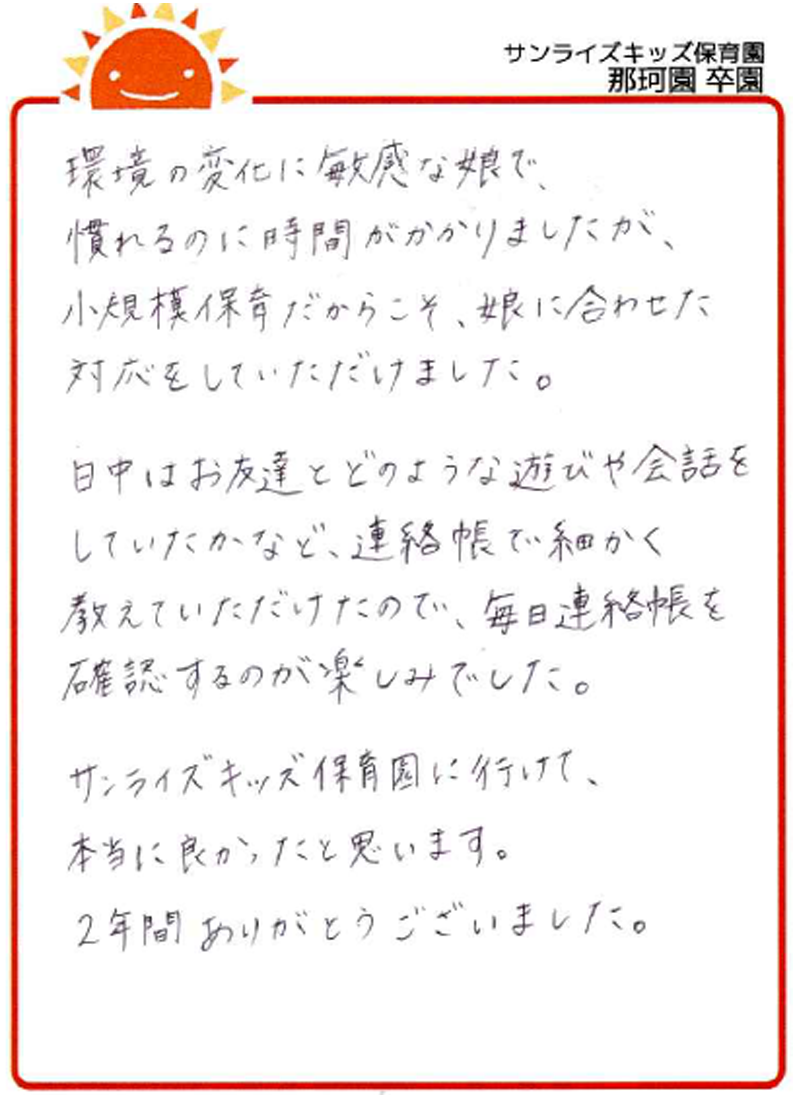 サンライズキッズ保育園
那珂園 卒園
環境の変化に敏感な娘で、
慣れるのに時間がかかりましたが、
小規模保育だからこそ、娘に合わせた
対応をしていただけました。
日中はお友達とどのような遊びや会話を
していたかなど、連絡帳で細かく
教えていただけたので、毎日連絡帳を
確認するのが楽しみでした。
サンライズキッズ保育園に行けて、
本当に良かったと思います。
2年間ありがとうございました。